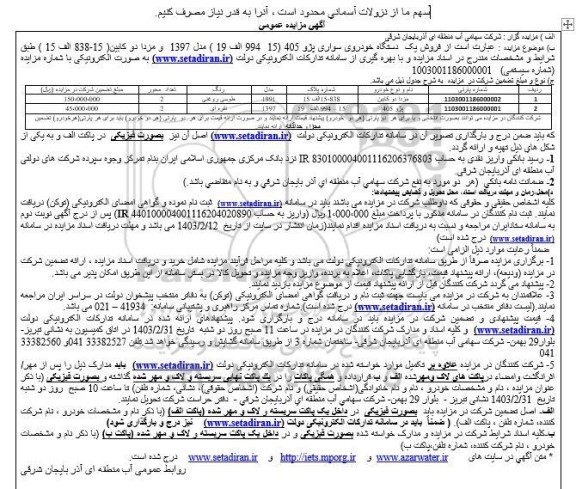 سهم ما از نزولات آسمانی محدود است ، آنرا به قدر نیاز مصرف کنیم.
آگهی مزایده عمومی
الف ) مزایده گزار : شرکت سهامی آب منطقه ای آذربایجان شرقی
ب) موضوع مزایده : عبارت است از فروش یک دستگاه خودروی سواری پژو 405 (15 994 الف 19 ) مدل 1397 و مزدا دو کابین( 15-838 الف 15 ) طبق
شرایط و مشخصات مندرج در اسناد مزایده و با بهره گیری از سامانه تدارکات الکترونیکی دولت (www.setadiran.ir) به صورت الکترونیکی با شماره مزایده
(شماره سیستمی) 1003001186000001
ج) مبلغ تضمین شرکت در مزایده به شرح جدول ذیل می باشد.
ردیف شماره پارتی نام و نوع خودرو شماره پلاک مدل رنگ تعداد محور مبلغ تضمین شرکت در مزایده (ریال)
1 1103001186000002 مزدا دو کابین 15-838 الف 15 1991 طوسی روغنی 2 150-000-000
2 1103001186000001 پژو 405 15 - 994 الف 19 1397 نقره ای 2 45-000-000
که باید ضمن درج و بارگذاری تصویر آن در سامانه تدارکات الکترونیکی دولت (www.setadiran.ir) اصل آن نیز بصورت فیزیکی در پاکت الف و به یکی از
شکل های ذیل تهیه و ارائه گردد.
1- رسید بانکی واریز نقدی به حساب IR 830100004001116206376803 نزد بانک مرکزی جمهوری اسلامی ایران بنام تمرکز وجوه سپرده شرکت های دولتی
آب منطقه ای آذربایجان شرقی.
2- ضمانت نامه بانکی (هر دو مورد به نفع شرکت سهامی آب منطقه ای آذر بایجان شرقی و به نام متقاضی باشد.)
کلیه اشخاص حقیقی و حقوقی که داوطلب شرکت در مزایده می باشند باید در سامانه (www.setadiran.ir) ثبت نام نموده و گواهی امضای الکترونیکی (توکن) دریافت
نمایند. ثبت نام کنندگان در سامانه مذکور با پرداخت مبلغ 000-000-1 ریال (واریز به حساب IR 440100004001116204020890) پس از درج آگهی نوبت دوم
به سامانه ستادایران مراجعه و نسبت به دریافت اسناد مزایده اقدام نمایند(زمان انتشار در سایت از تاریخ 1403/2/12 می باشد و مهلت دریافت اسناد مزایده در سامانه
(www.setadiran.ir) درج شده است)
ضمناً رعایت موارد ذیل الزامی است:
1- برگزاری مزایده صرفاً از طریق سامانه تدارکات الکترونیکی دولت می باشد و کلیه مراحل فرآیند مزایده شامل خرید و دریافت اسناد مزایده ، ارائه تضمین شرکت
در مزایده (ودیعه)، ارائه پیشنهاد قیمت، بازگشایی پاکات، اعلام به برنده، واریز وجه مزایده و تحویل کالا در بستر سامانه از این طریق امکان پذیر می باشد.
2- پیشنهاد می گردد شرکت کنندگان قبل از ارائه پیشنهاد قیمت از موضوع مزایده بازدید نمایند.
3- علاقمندان به شرکت در مزایده می بایست جهت ثبت نام و دریافت گواهی امضای الکترونیکی (توکن) به دفاتر منتخب پیشخوان دولت در سراسر ایران مراجعه
نمایند (لیست دفاتر منتخب در سامانه (www.setadiran.ir) درج شده است) شماره تماس مرکز راهبری و پشتیبانی سامانه: 41934 – 021 می باشد.
4- قیمت پیشنهادی و تضمین شرکت در مزایده باید در سامانه درج و بارگذاری شود. پیشنهادهای ارائه شده در سامانه تدارکات الکترونیکی دولت
(www.setadiran.ir) و کلیه اسناد و مدارک شرکت کنندگان در مزایده در ساعت 11 صبح روز دو شنبه تاریخ 1403/2/31 در اتاق کمیسیون به نشانی تبریز-
بلوار29 بهمن- شرکت سهامی آب منطقه ای آذربایجان شرقی- ساختمان شماره 3 از طریق سامانه گشایش و رسیدگی خواهد شد.تلفن 33382527 041و 33382560
041
5- شرکت کنندگان در مزایده علاوه بر تکمیل موارد خواسته شده در سامانه تدارکات الکترونیکی دولت (www.setadiran.ir) باید مدارک ذیل را پس از مهر/
اثرانگشت وامضاء در پاکت های لاک ومهرشده الف و ب قرارداده و همگی پاکات را در یک پاکت نهایی سربسته و لاک و مهر شده گذاشته و بصورت فیزیکی (با ذکر
عنوان مزایده ، نام و مشخصات خودرو ، نام و نام خانوادگی(اشخاص حقیقی) و نام شرکت (اشخاص حقوقی)، نشانی ، شماره تلفن) تا ساعت 10 صبح روز دو شنبه
تاریخ 1403/2/31 نشانی تبریز - بلوار 29 بهمن- شرکت سهامی آب منطقه ای آذربایجان شرقی - دفتر حراست شرکت تحویل نمایند.
الف. اصل تضمین شرکت در مزایده باید بصورت فیزیکی در داخل یک پاکت سربسته و لاک و مهر شده (پاکت الف) (با ذکر نام و مشخصات خودرو ، نام شرکت
کننده، شماره تلفن ، پاکت الف). ( ضمناً باید در سامانه تدارکات الکترونیکی دولت (www.setadiran.ir) نیز درج و بارگذاری شود)
ب.کلیه اسناد شرایط شرکت در مزایده و مدارک خواسته شده بصورت فیزیکی و در داخل یک پاکت سربسته و لاک و مهر شده (پاکت ب) (با ذکر نام و مشخصات
خودرو ، نام شرکت کننده، شماره تلفن،پاکت ب)
* متن آگهی در سایت های www.azarwater.ir و http://iets.mporg.ir و www.setadiran.ir درج شده است.
روابط عمومی آب منطقه ای آذر بایجان شرقی